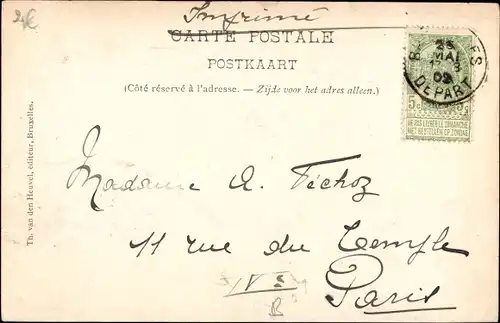 2€
Imprimé
CARTE POSTALE
POSTKAART
(Côté réservé à l'adresse. — Zijde voor het adres alleen.)
26
MAI
02
DEPART
5c
NE PAS LIVRER LE DIMANCHE
NIET BESTELLEN OP ZONDAG
Th. van den Heuvel, editeur, Bruxelles.
Madame A. Féchoz
11 rue du Temple
IVe
Paris